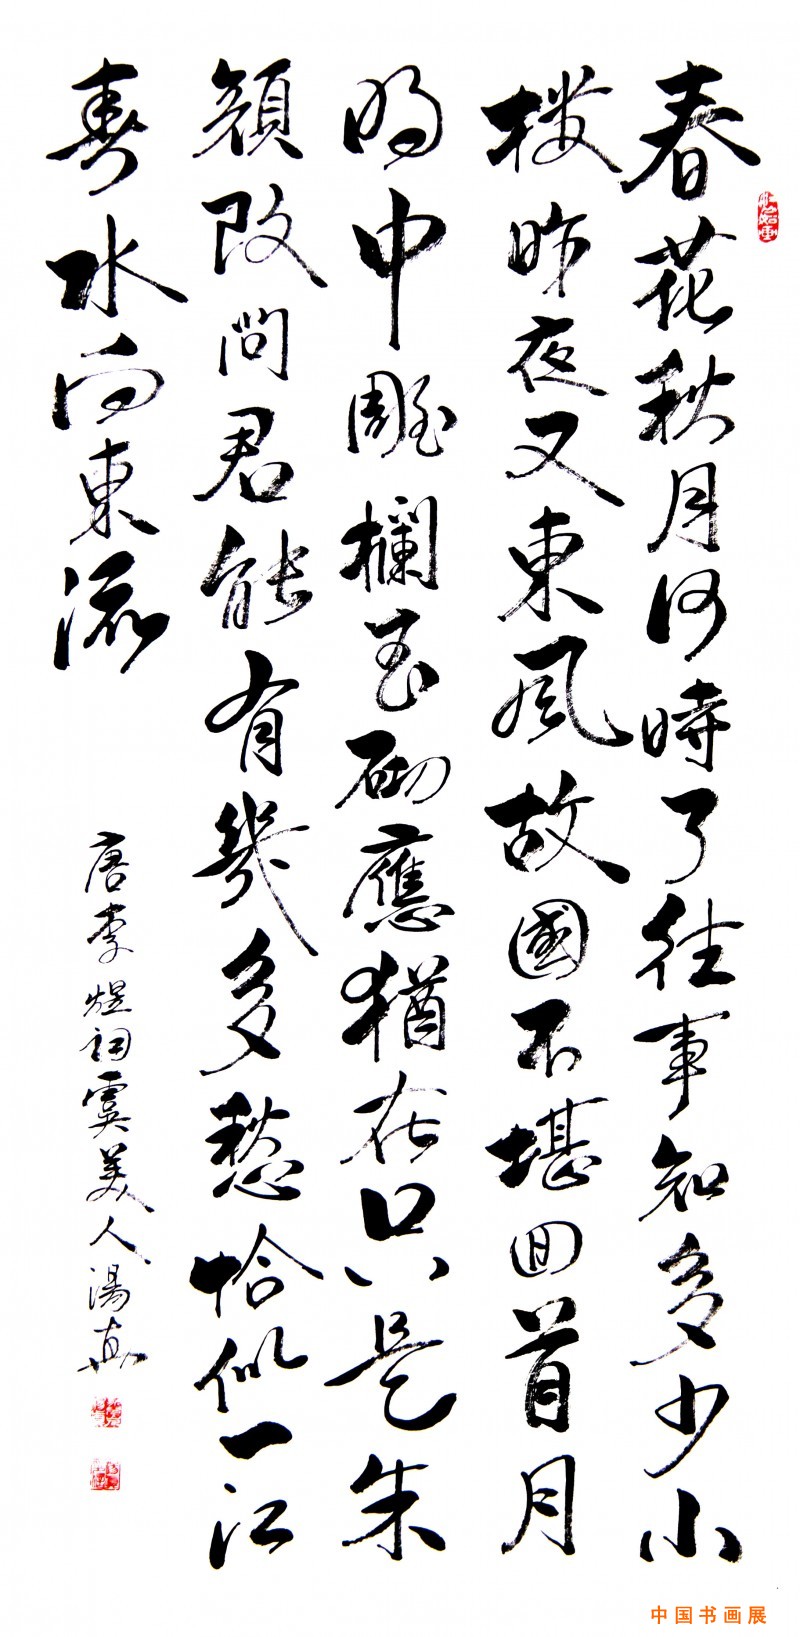 春花秋月何時了往事知多少小
楼昨夜又東風故國不堪回首月
明中雕欄玉砌應猶在只是朱
顏改問君能有幾多愁恰似一江
春水向東流
唐李煜詞虞美人湯真
中国书画展